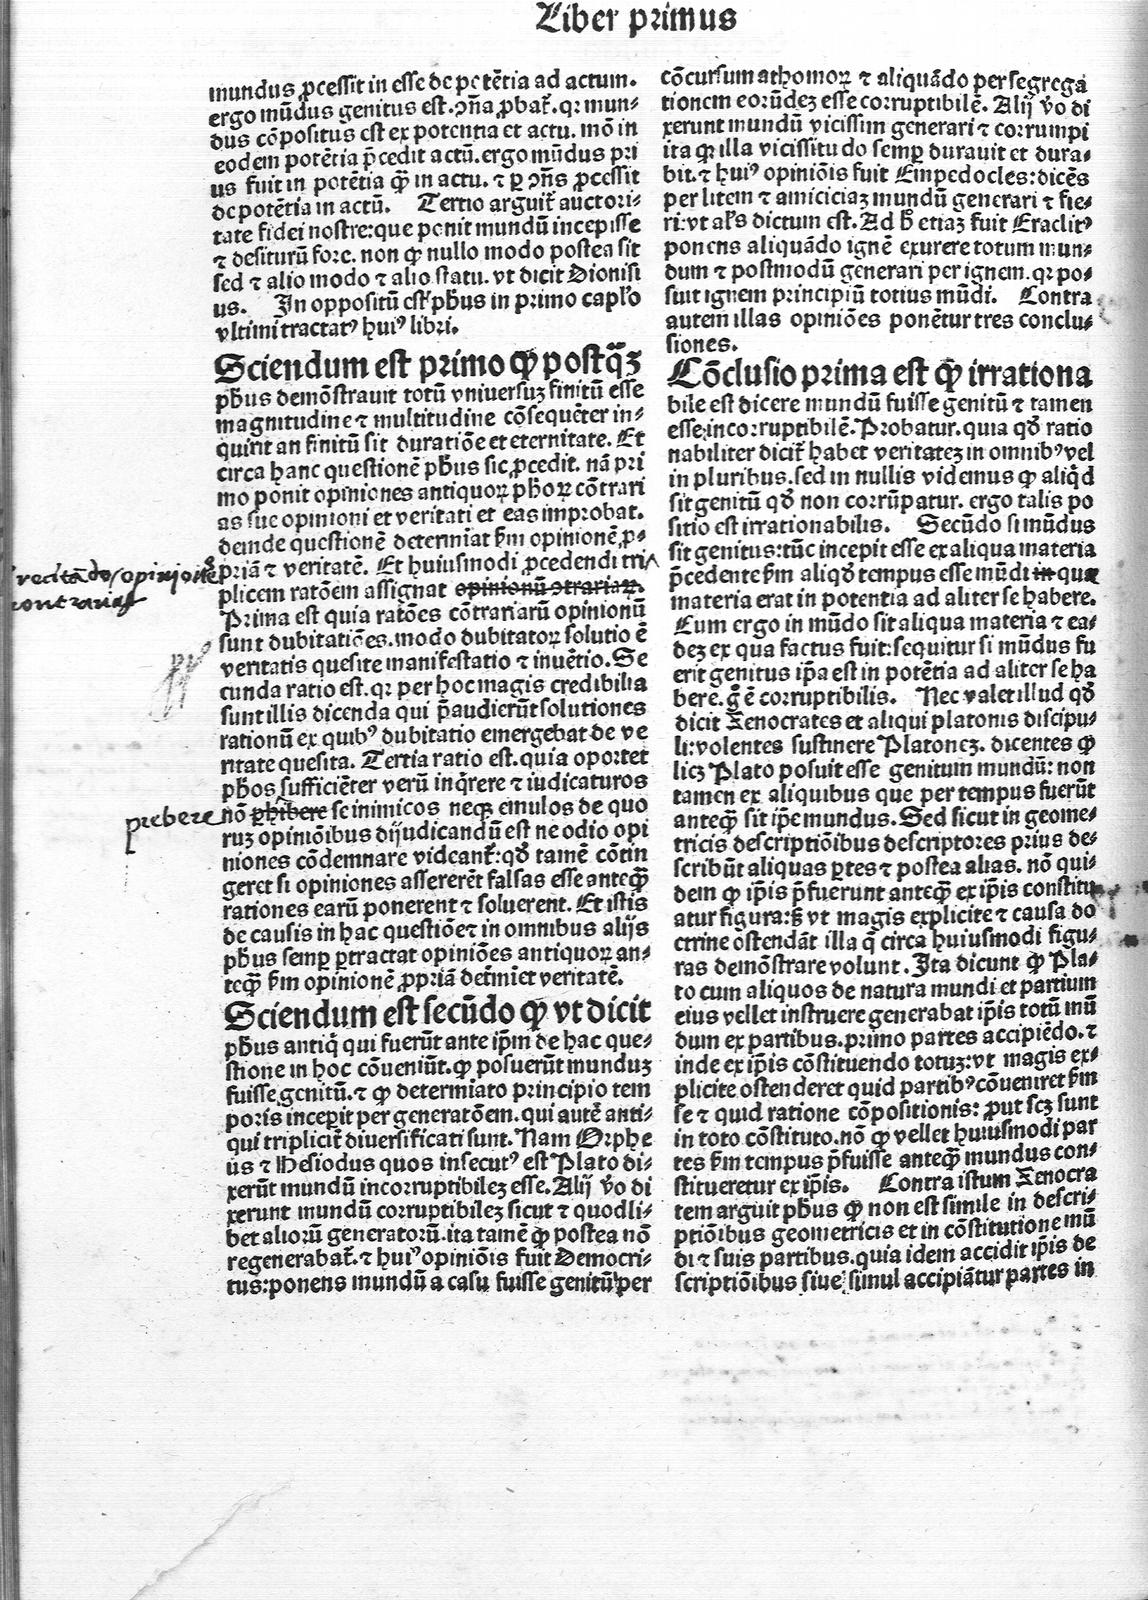 Liber primus
mundus ꝓcessit in esse de potētia ad actum.
ergo mūdus genitus est. ↄña ꝓbat᷑. qꝛ mun-
dus cōpositus est ex potentia et actu. mō in
eodem potētia p̄cedit actū. ergo mūdus pri
us fuit in potētia ꝙ̄ in actu. ⁊ ꝑ ↄñs ꝓcessit
de potētia in actū. Tertio arguit᷑ auctori-
tate fidei nostre: que ponit mundū incepisse
⁊ desiturū fore. non ꝙ nullo modo postea sit
sed ⁊ alio modo ⁊ alio statu. vt dicit Dionisi
us. In oppositū est ph̄us in primo capl'o
vltimi tractatꝰ huiꝰ libri.
Sciendum est primo ꝙ postq̄ꝫ
ph̄us demōstrauit totū vniuersuꝫ finitū esse
magnitudine ⁊ multitudine cōsequēter in-
quirit an finitū sit duratiōe et eternitate. Et
circa hanc questionē ph̄us sic ꝓcedit. nā pri
mo ponit opiniones antiquoꝝ ph̄oꝝ cōtrari
as sue opinioni et veritati et eas improbat.
deinde questionē determīat ẜm opinionē ꝓ-
priā ⁊ veritatē. Et huiusmodi ꝓcedendi tri
recitādo opiniones
contrarias
plicem ratōem assignat opinionū ↄtrariaꝝ.
Prima est quia ratōes cōtrariarū opinionū
sunt dubitatiōes. modo dubitatoꝝ solutio ē
veritatis quesite manifestatio ⁊ inuētio. Se
cunda ratio est. qꝛ per hoc magis credibilia
sunt illis dicenda qui p̄audierūt solutiones
rationū ex quibꝰ dubitatio emergebat de ve
ritate quesita. Tertia ratio est. quia oportet
ph̄os sufficiēter verū inq̄rere ⁊ iudicaturos
prebere
nō ꝓhibere se inimicos neqꝫ emulos de quo
ruꝫ opiniōibus dijudicandū est ne odio opi
niones cōdemnare videant᷑: qđ tamē cōtin
geret si opiniones assererēt falsas esse anteꝙ̄
rationes earū ponerent ⁊ soluerent. Et istis
de causis in hac questiōe ⁊ in omnibus alijs
ph̄us semꝑ ꝑtractat opiniōes antiquoꝝ an-
teꝙ̄ ẜm opinionē ꝓpriā det̄miet veritatē.
Sciendum est secūdo ꝙ vt dicit
ph̄us antiq̄ qui fuerūt ante ip̄m de hac que-
stione in hoc cōueniūt. ꝙ posuerūt munduꝫ
fuisse genitū. ⁊ ꝙ determīato principio tem
poris incepit per generatōem. qui autē anti-
qui triplicit᷑ diuersificati sunt. Nam Orphe
us ⁊ Hesiodus quos insecutꝰ est Plato di-
xerūt mundū incorruptibileꝫ esse. Alij v̄o di
xerunt mundū corruptibileꝫ sicut ⁊ quodli-
bet aliorū generatorū. ita tamē ꝙ postea nō
regenerabat᷑. ⁊ huiꝰ opiniōis fuit Democri-
tus: ponens mundū a casu fuisse genitū per
cōcursum athomoꝝ ⁊ aliquādo per segrega
tionem eorūdeꝫ esse corruptibilē. Alij v̄o di
xerunt mundū vicissim generari ⁊ corrumpi
ita ꝙ illa vicissitudo semꝑ durauit et dura-
bit. ⁊ huiꝰ opiniōis fuit Empedocles: dicēs
per litem ⁊ amiciciaꝫ mundū generari ⁊ fie-
ri: vt al's dictum est. Ad h̄ etiaꝫ fuit Eraclitꝰ
ponens aliquādo ignē exurere totum mun-
dum ⁊ postmodū generari per ignem. qꝛ po-
suit ignem principiū totius mūdi. Contra
autem illas opiniōes ponētur tres conclu-
siones.
Cōclusio prima est ꝙ irrationa
bile est dicere mundū fuisse genitū ⁊ tamen
esse incorruptibilē. Probatur. quia qđ ratio
nabiliter dicit᷑ habet veritateꝫ in omnibꝰ vel
in pluribus. sed in nullis videmus ꝙ aliq̄d
sit genitū qđ non corrūpatur. ergo talis po
sitio est irrationabilis. Secūdo si mūdus
sit genitus: tūc incepit esse ex aliqua materia
p̄cedente ẜm aliqđ tempus esse mūdi in qua
materia erat in potentia ad aliter se habere.
Cum ergo in mūdo sit aliqua materia ⁊ ea-
deꝫ ex qua factus fuit: sequitur si mūdus fu
erit genitus ip̄a est in potētia ad aliter se ha
bere. g̊ ē corruptibilis. Nec valet illud qđ
dicit Xenocrates et aliqui platonis discipu-
li: volentes sustinere Platoneꝫ. dicentes ꝙ
licꝫ Plato posuit esse genitum mundū: non
tamen ex aliquibus que per tempus fuerūt
anteꝙ̄ sit ip̄e mundus. Sed sicut in geome-
tricis descriptiōibus descriptores prius de-
scribūt aliquas ꝑtes ⁊ postea alias. nō qui-
dem ꝙ ip̄is p̄fuerunt anteꝙ̄ ex ip̄is constitu
atur figura: sꝫ vt magis explicite ⁊ causa do
ctrine ostendāt illa q̄ circa huiusmodi figu-
ras demōstrare volunt. Ita dicunt ꝙ Pla-
to cum aliquos de natura mundi et partium
eius vellet instruere generabat ip̄is totū mū
dum ex partibus. primo partes accipiēdo. ⁊
inde ex ip̄is cōstituendo totuꝫ: vt magis ex-
plicite ostenderet quid partibꝰ cōueniret ẜm
se ⁊ quid ratione cōpositionis: ꝓut scꝫ sunt
in toto cōstituto. nō ꝙ vellet huiusmodi par
tes ẜm tempus p̄fuisse anteꝙ̄ mundus con-
stitueretur ex ip̄is. Contra istum Xenocra
tem arguit ph̄us ꝙ non est simile in descri-
ptiōibus geometricis et in cōstitutione mū
di ⁊ suis partibus. quia idem accidit ip̄is de
scriptiōibus siue simul accipiātur partes in